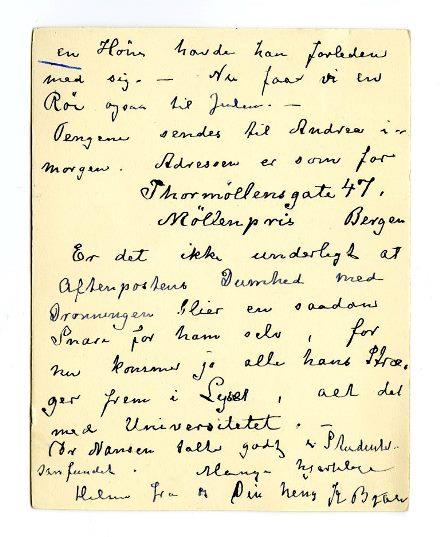 en Höns havde han forleden
med sig. — Nu faar vi en
Röi ogsaa til Julen. —
Pengene sendes til Andrea i
morgen. Adressen er som for
Thormöllensgate 47,
Möllenpris Bergen
Er det ikke underligt at
Aftenpostens Dumhed med
Dronningen blier en saadan
Snare for ham selv, for
nu kommer jo alle hans Stræ-
ger frem i Lyset, alt det
med Universitetet. —
Dr Nansen talte godt i Studenter-
samfundet. Mange hjertelige
Hilsner fra os Din heng